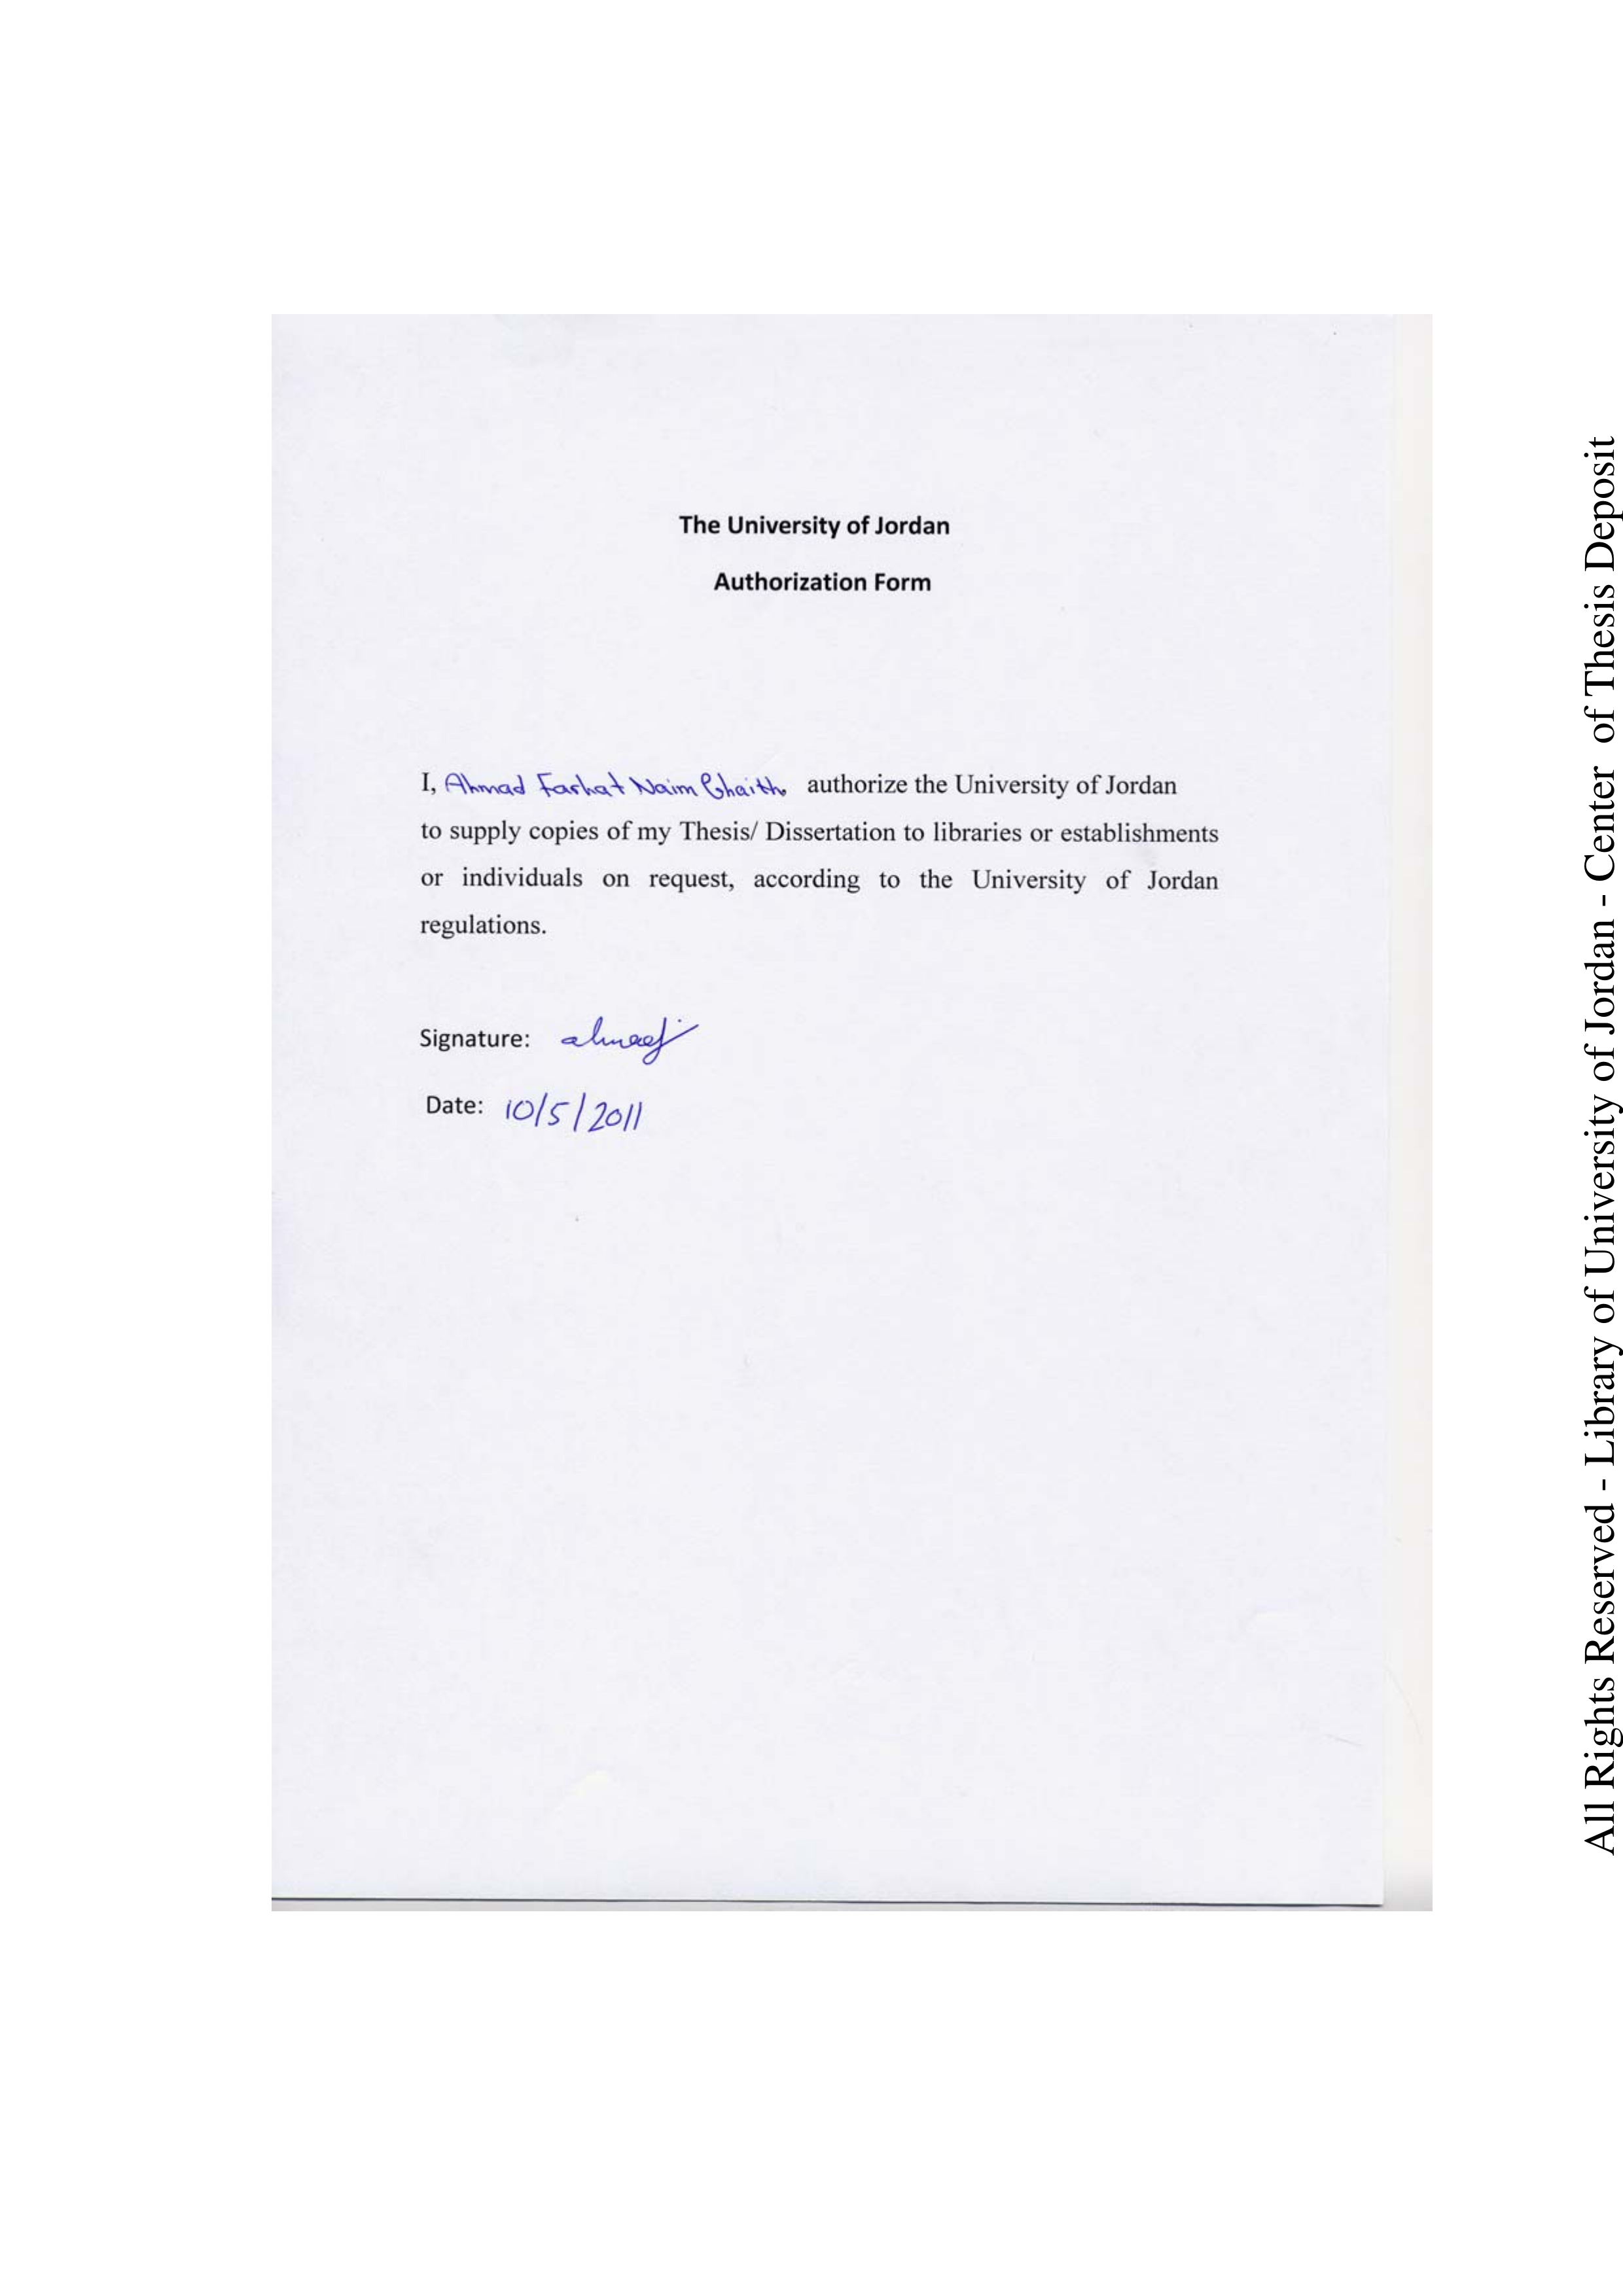 The University of Jordan
Authorization Form
I, Ahmad Farhat Naim Ghaith authorize the University of Jordan
to supply copies of my Thesis/ Dissertation to libraries or establishments
or individuals on request, according to the University of Jordan
regulations.
Signature: ahmad
Date: 10/5/2011
All Rights Reserved - Library of University of Jordan - Center of Thesis Deposit